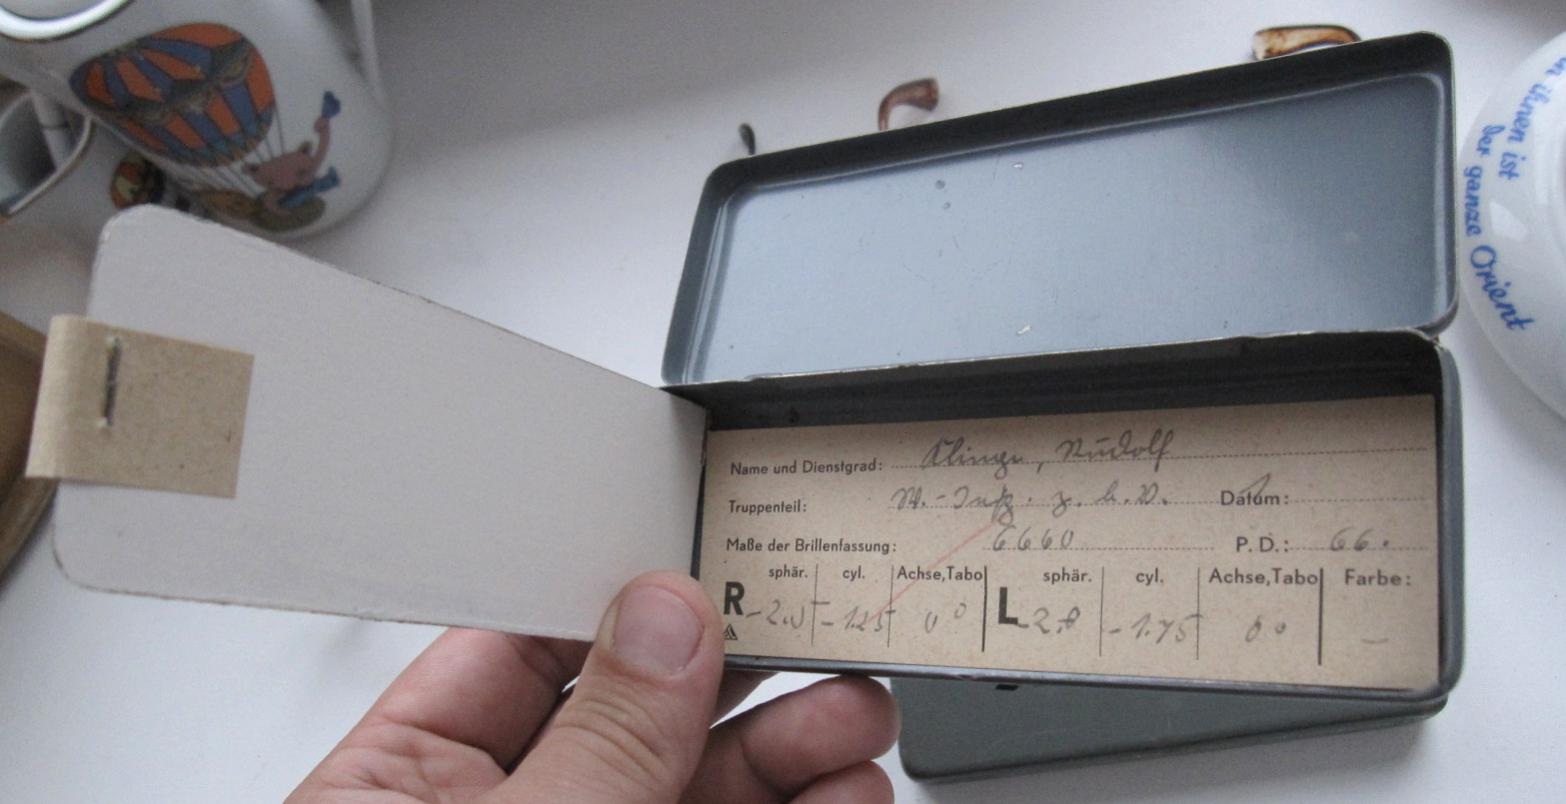 n ihnen ist
der ganze Orient
Name und Dienstgrad: Klinge, Rudolf
Truppenteil: z. b. V. Datum:
Maße der Brillenfassung: 6660 P. D.: 66.
sphär. cyl. Achse, Tabo sphär. cyl. Achse, Tabo Farbe:
R -2.0 -1.25 0° L -1.75 0° —